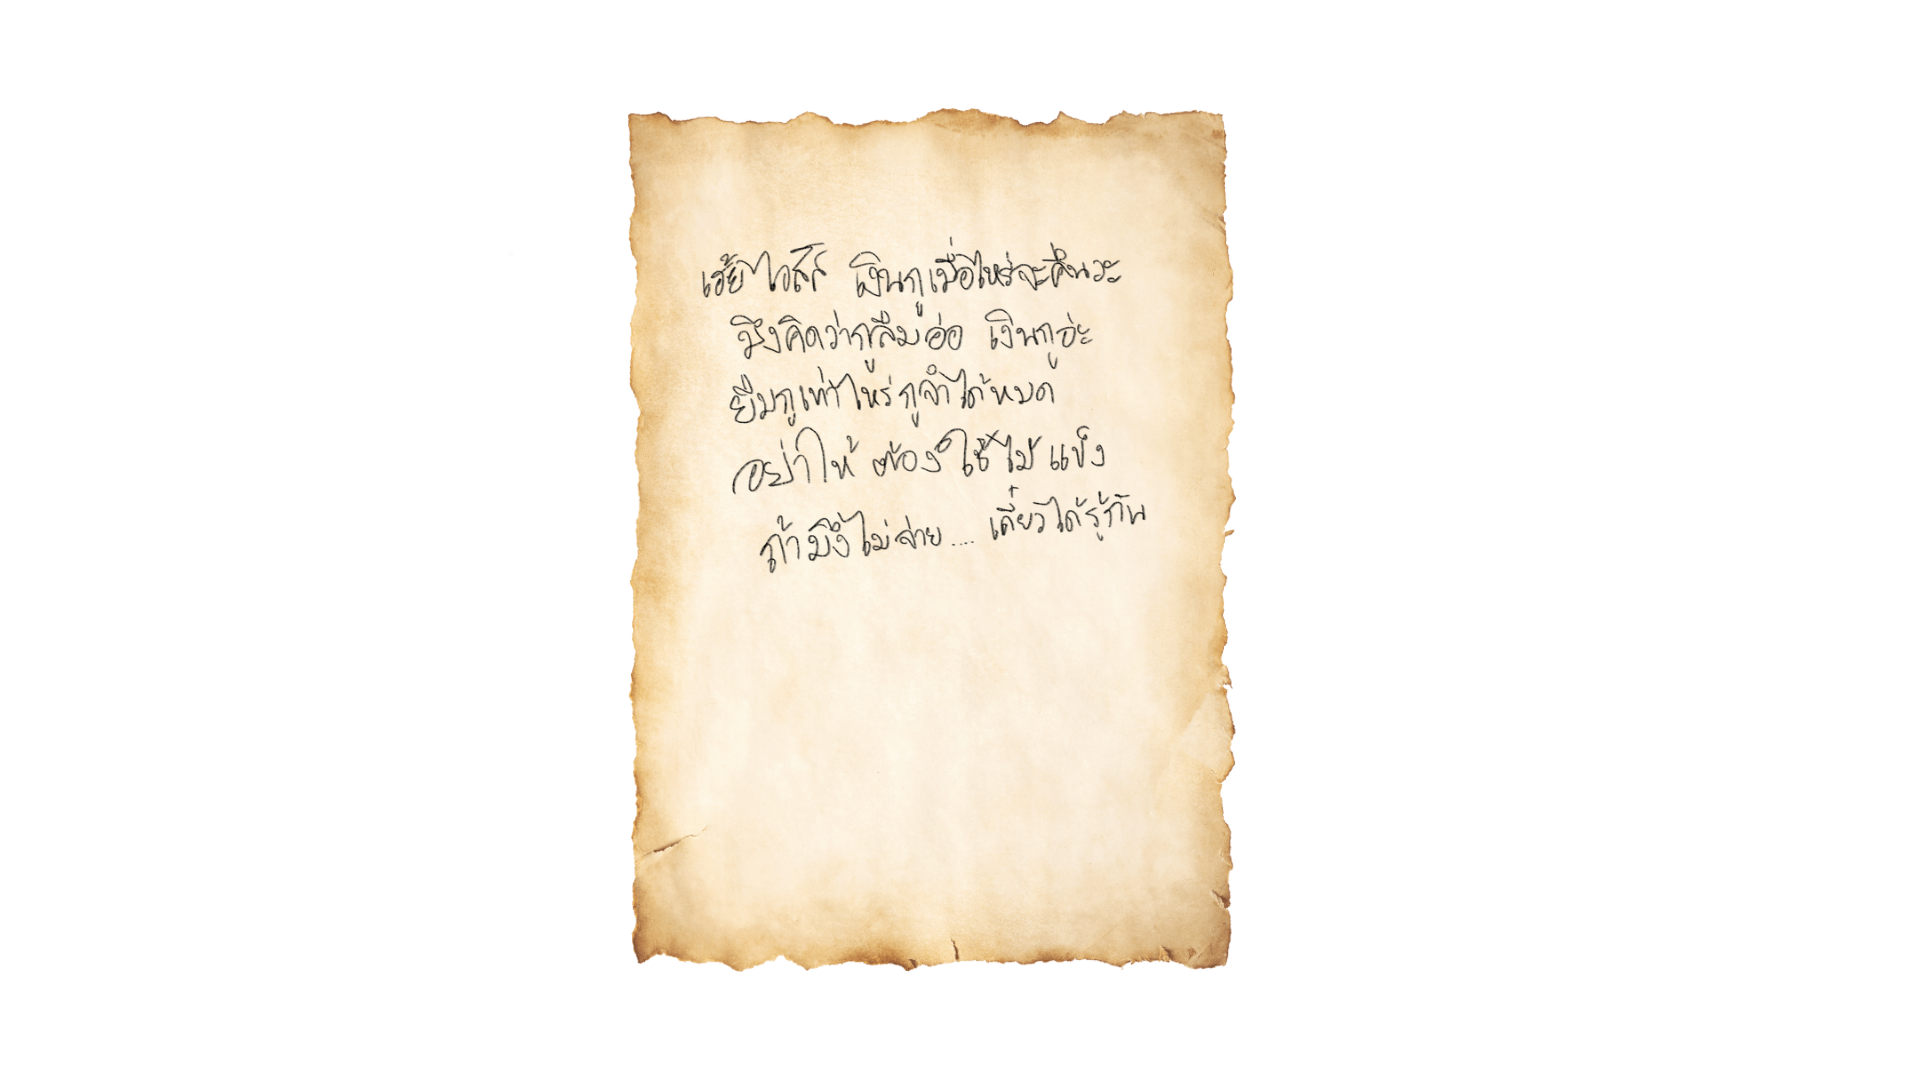 เฮ้ย ไอสัส เงินกูเมื่อไหร่จะคืนวะ
มึงคิดว่ากูลืมอ่อ เงินกูอ่ะ
ยืมกูเท่าไหร่ กูจำได้หมด
อย่าให้ ต้องใช้ไม้ แข็ง
ถ้ามึงไม่จ่าย .... เดี๋ยวได้รู้กัน